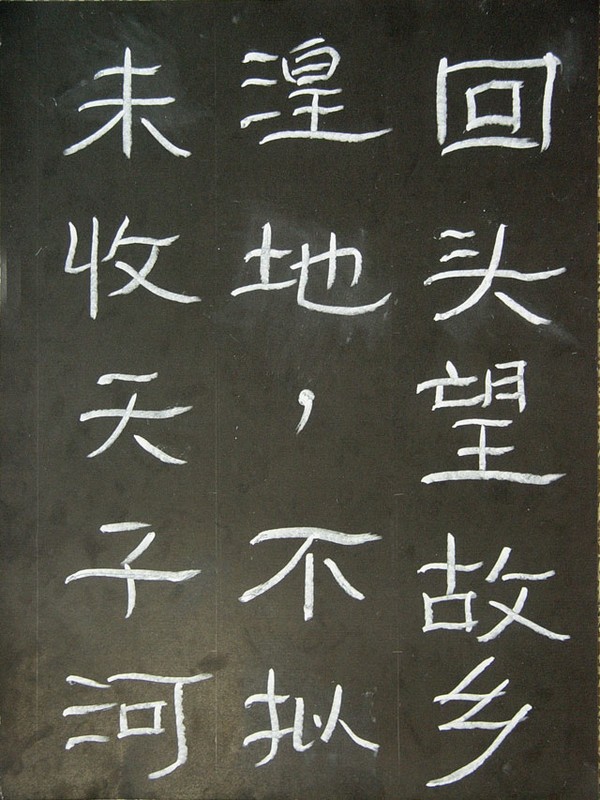 回头望故乡
湟地，不拟
未收天子河